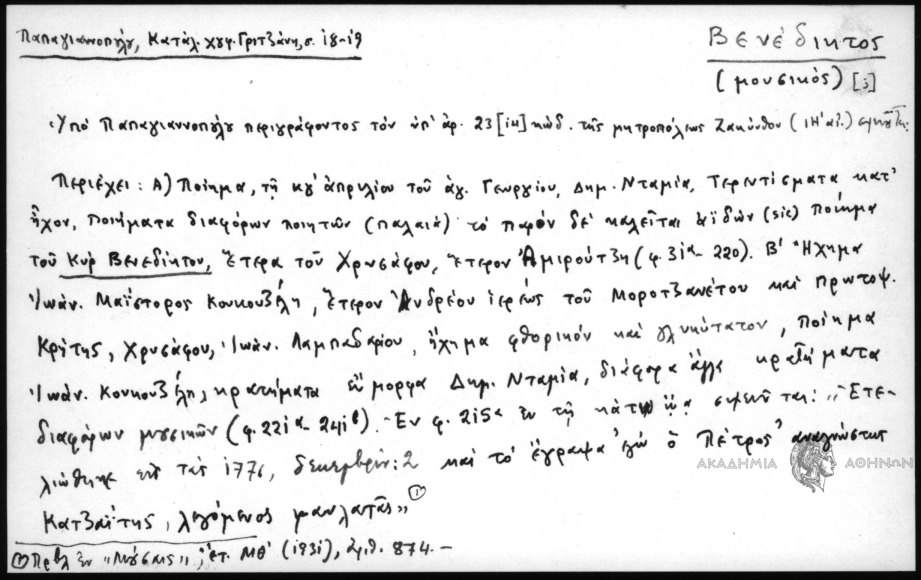 Παπαγιαννοπούλου, Κατάλ. χφ. Γριτζάνη, σ. 18-19
Βενέδικτος
(μουσικός) [3]
Ὑπό Παπαγιαννοπούλου περιγράφοντος τόν ὑπ' ἀρ. 23 [14] κώδ. τῆς μητροπόλεως Ζακύνθου (ΙΗ' αἰ.)
Περιέχει: Α) Ποίημα, τῇ κγ' ἀπριλίου τοῦ ἁγ. Γεωργίου, Δημ. Νταμία, Τερεντίσματα κατ'
ἦχον, ποιήματα διαφόρων ποιητῶν (παλαιά) τό παρόν δέ καλεῖται ἀϊδών (sic) ποίημα
τοῦ Κύρ Βενεδίκτου, ἕτερα τοῦ Χρυσάφου, ἕτερον Ἀμιρούτζη (φ. 31α - 220). Β' Ἤχημα
Ἰωάν. Μαΐστορος Κουκουζέλη, ἕτερον Ἀνδρέου ἱερέως τοῦ Μοροτζανέτου καί πρωτοψ.
Κρήτης, Χρυσάφου, Ἰωάν. Λαμπαδαρίου, ἤχημα φθορικόν καί γλυκύτατον, ποίημα
Ἰωάν. Κουκουζέλη, κρατήματα εὔμορφα Δημ. Νταμία, διάφορα ἄλλα κρατήματα
διαφόρων μουσικῶν (φ. 221α - 241β). Ἐν φ. 215α ἐν τῇ κάτω ᾤᾳ σημειοῦται: „Ἐτε-
λιώθηκε εἰς τάς 1776, δεκεμβρίου: 2 καί τό ἔγραψα ἐγώ ὁ Πέτρος ἀναγνώστης
Κατζαΐτης, λεγόμενος μανλατᾶς„ (1)
(1) Πρβλ ἐν „Μούσαις„, ἔτ. ΜΘ' (1931), ἀριθ. 874.-
ΑΚΑΔΗΜΙΑ ΑΘΗΝΩΝ